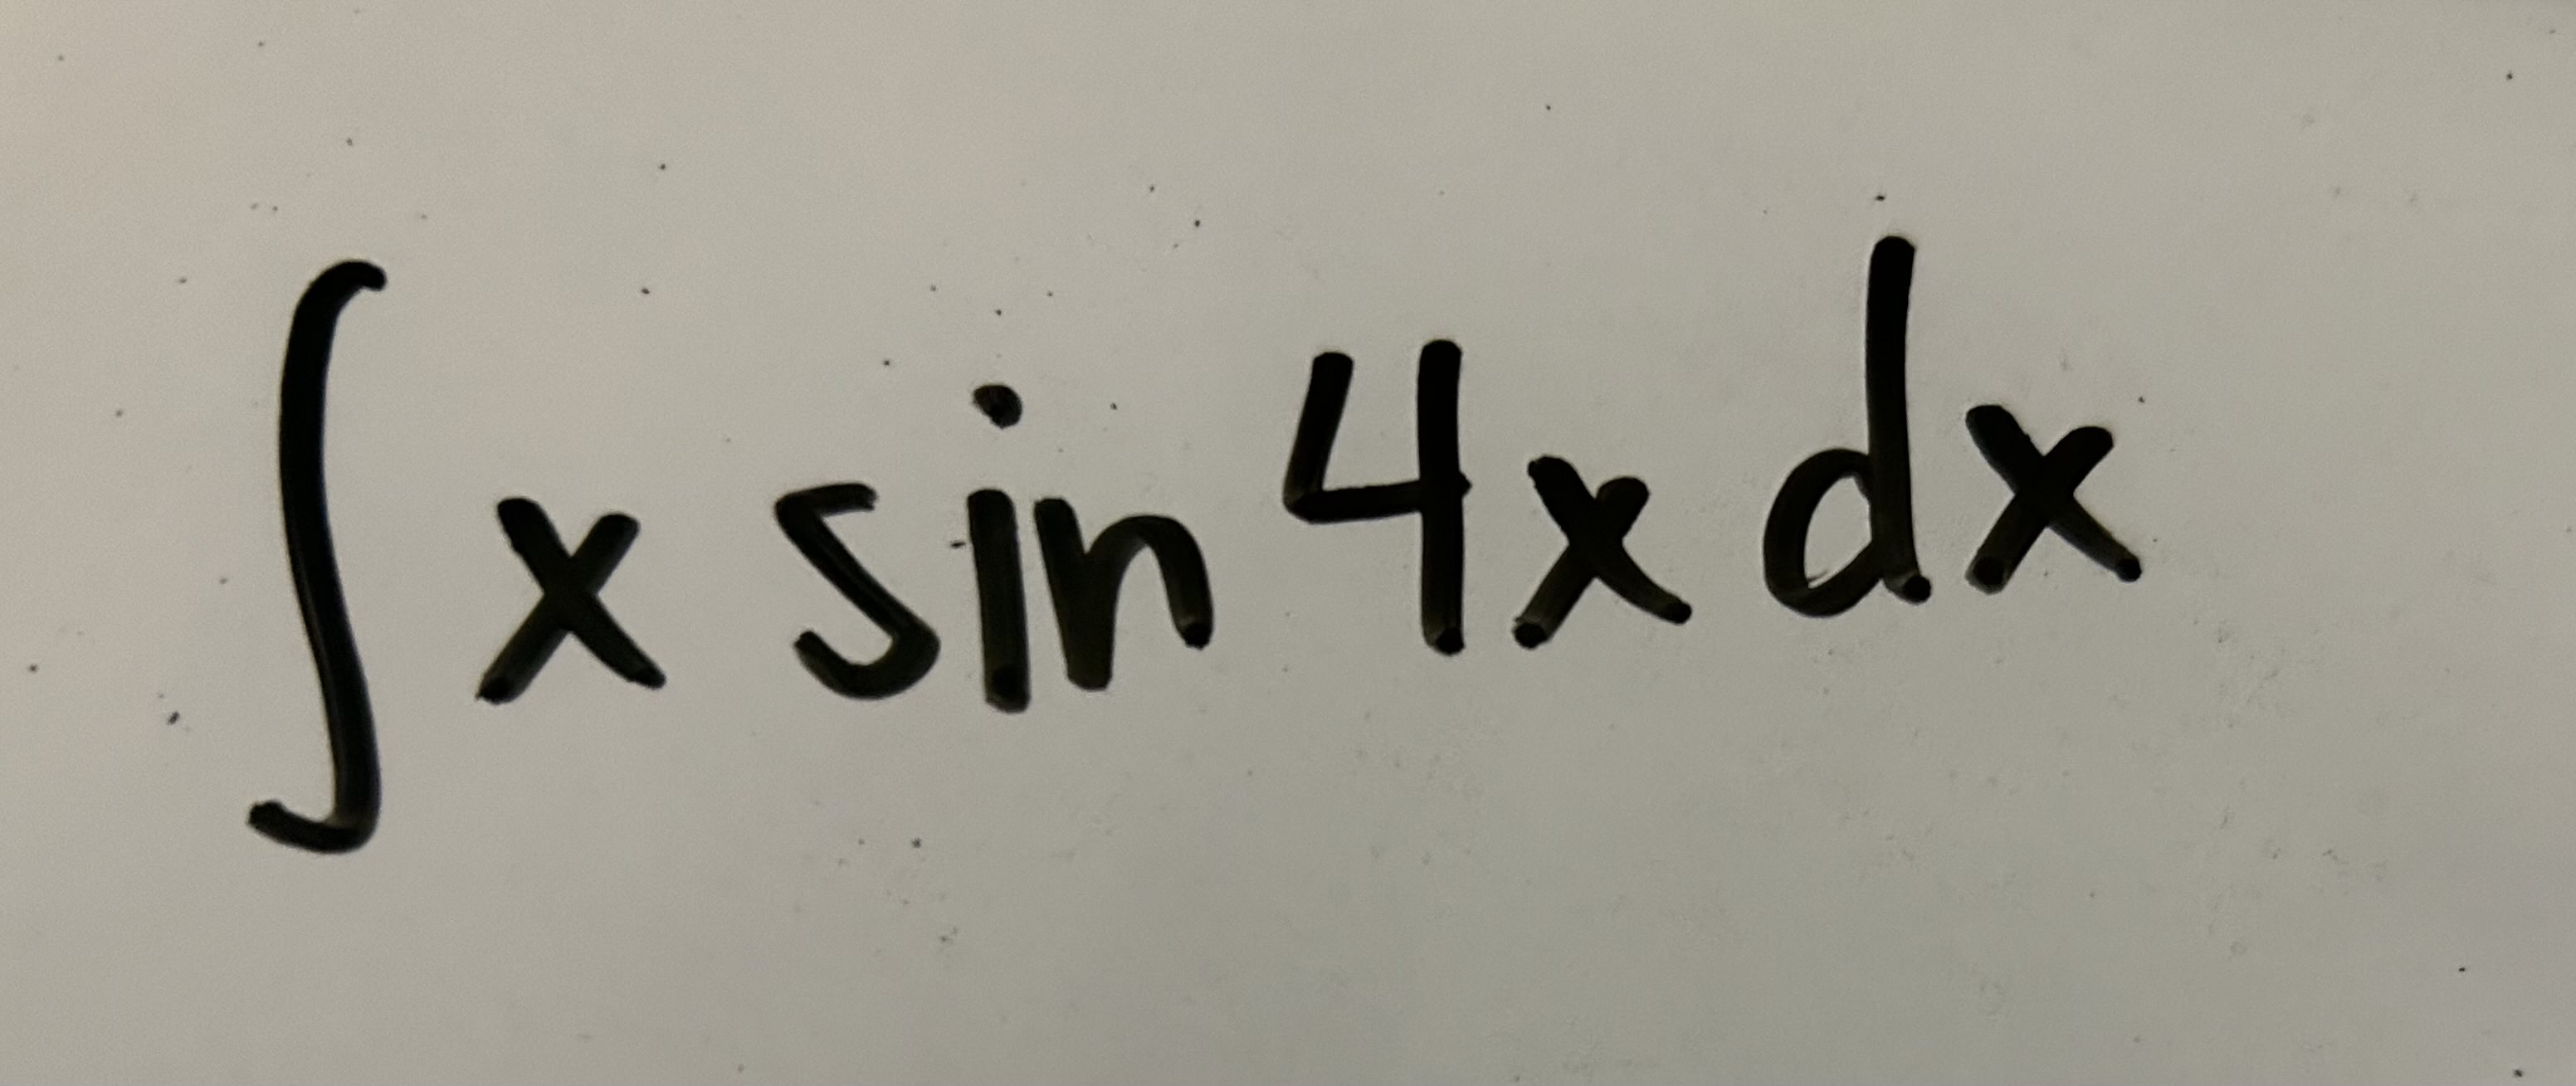 ∫ x sin 4x dx